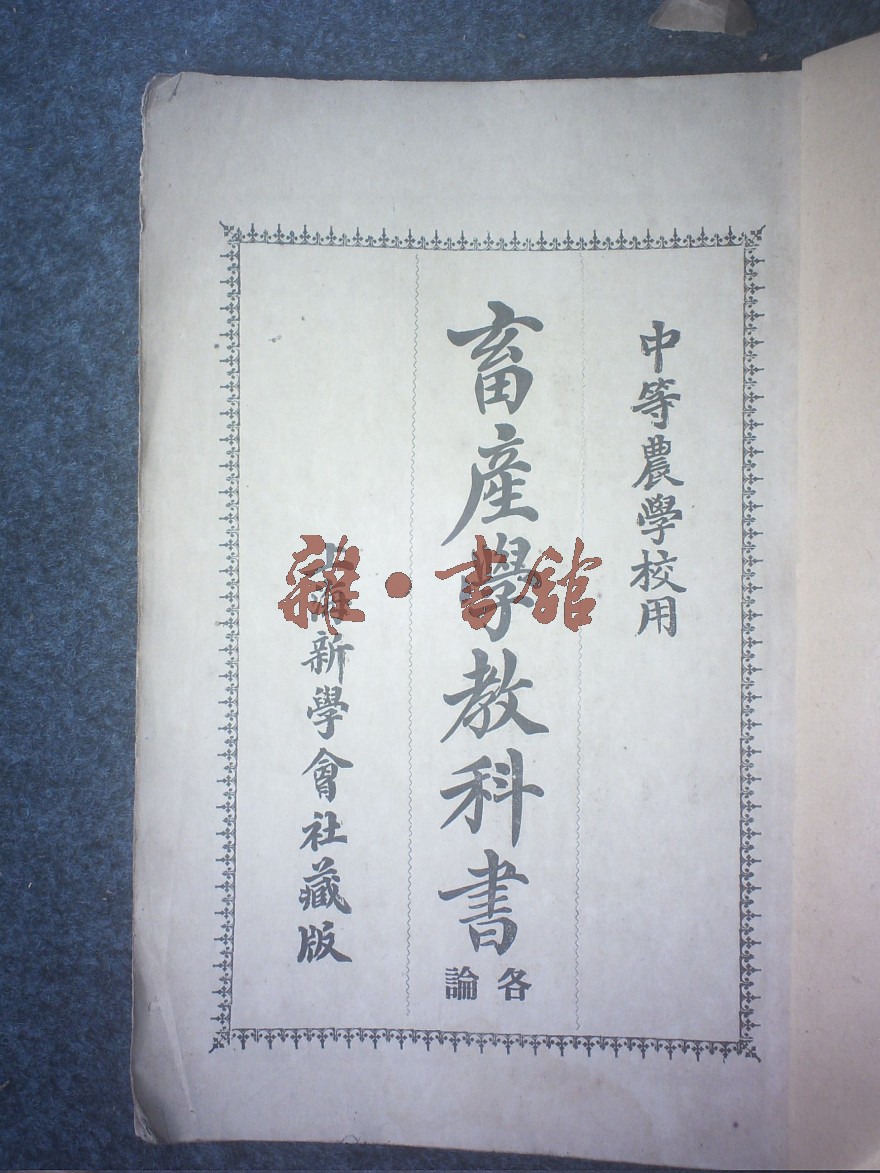 中等農學校用
畜産學教科書
各論
上海新學會社藏版
雜·書館